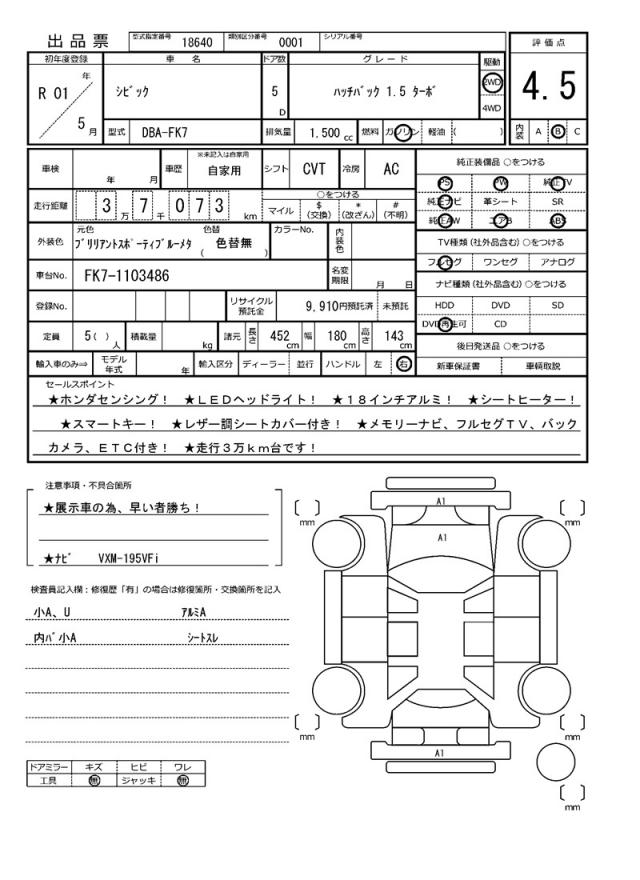 出品票 型式指定番号 18640 類別区分番号 0001 シリアル番号
評価点
4.5
内装 A B C
初年度登録 車名 ドア数 グレード 駆動
R 01 年 5 月 シビック 5 D ハッチバック 1.5 ターボ 2WD 4WD
型式 DBA-FK7 排気量 1.500 cc 燃料 ガソリン 軽油 ( )
車検 年 月 車歴 ※未記入は自家用 自家用 シフト CVT 冷房 AC
走行距離 3 万 7 千 0 7 3 km ○をつける
マイル $ (交換) * (改ざん) # (不明)
外装色 元色 ブリリアントスポーティブルーメタ 色替 ( 色替無 ) カラーNo. 内装色
車台No. FK7-1103486 名変期限 月 日
登録No. リサイクル預託金 9,910円預託済 未預託
定員 5( )人 積載量 kg 諸元 長さ 452 cm 幅 180 cm 高さ 143 cm
輸入車のみ⇒ モデル年式 年 輸入区分 ディーラー 並行 ハンドル 左 右
純正装備品 ○をつける
PS PW 純正TV
純正ナビ 革シート SR
純正AW エアB ABS
TV種類(社外品含む) ○をつける
フルセグ ワンセグ アナログ
ナビ種類(社外品含む) ○をつける
HDD DVD SD
DVD再生可 CD
後日発送品 ○をつける
新車保証書 車輌取説
セールスポイント
★ホンダセンシング! ★LEDヘッドライト! ★18インチアルミ! ★シートヒーター!
★スマートキー! ★レザー調シートカバー付き! ★メモリーナビ、フルセグTV、バック
カメラ、ETC付き! ★走行3万km台です!
注意事項・不具合箇所
★展示車の為、早い者勝ち!
★ナビ VXM-195VFi
検査員記入欄:修復歴「有」の場合は修復箇所・交換箇所を記入
小A、U アルミA
内バ小A シートスレ
ドアミラー キズ ヒビ ワレ
工具 無 ジャッキ 無
A1
[ ] mm [ ] mm
A1
[ ] mm [ ] mm
A1
[ ] mm